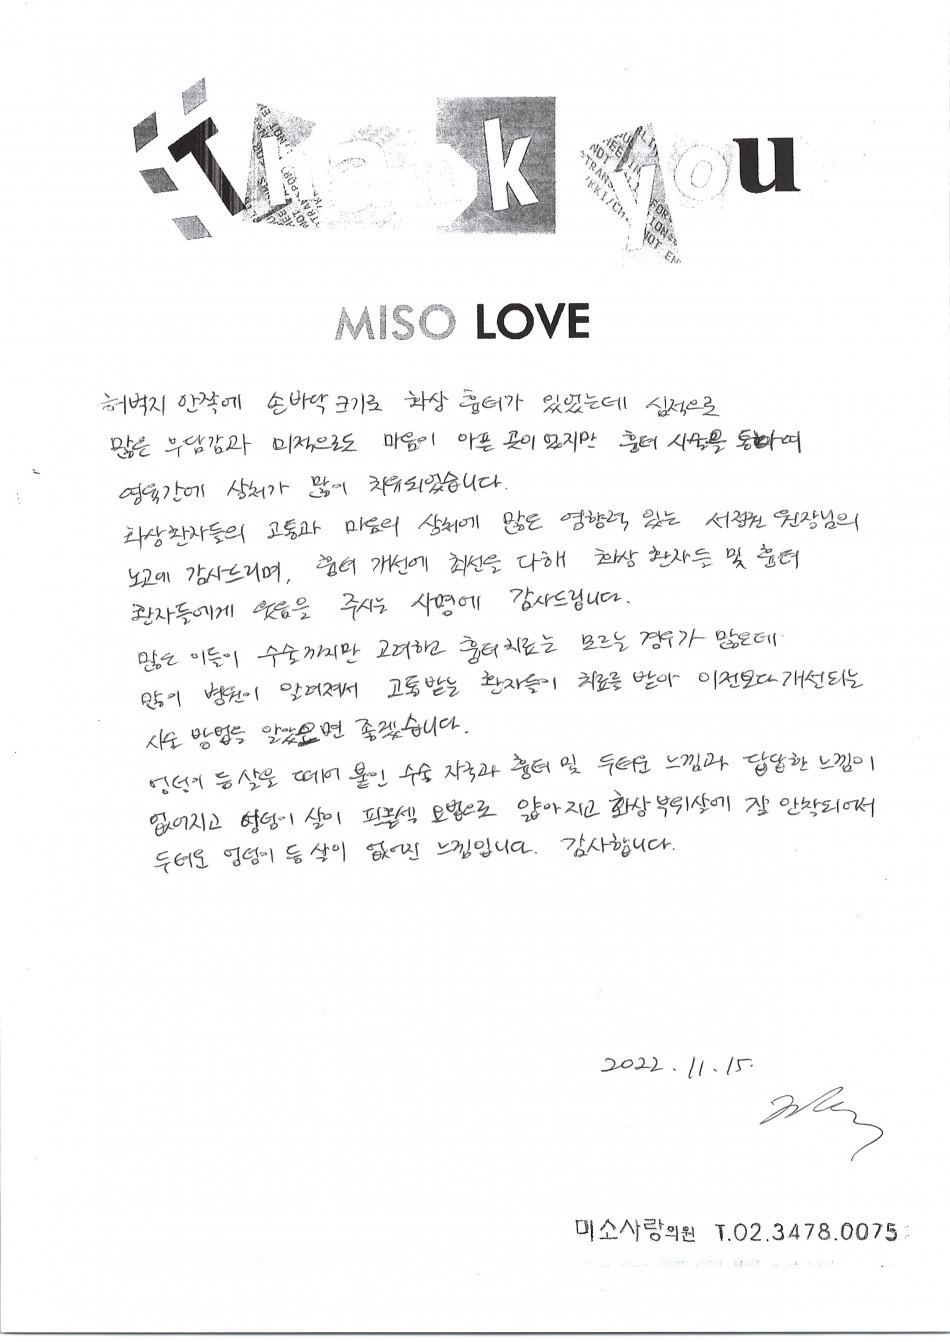 Thank you
MISO LOVE
허벅지 안쪽에 손바닥 크기로 화상 흉터가 있었는데 심적으로
많은 부담감과 미적으로도 마음이 아픈 곳이었지만 흉터 시술을 통하여
영육간에 상처가 많이 치유되었습니다.
화상환자들의 고통과 마음의 상처에 많은 영향력 있는 원장님의
노고에 감사드리며, 흉터 개선에 최선을 다해 화상 환자들 및 흉터
환자들에게 웃음을 주시는 사명에 감사드립니다.
많은 이들이 수술까지만 고려하고 흉터치료는 모르는 경우가 많은데
많이 병원이 알려져서 고통받는 환자들이 치료를 받아 이전보다 개선되는
시술 방법을 알았으면 좋겠습니다.
엉덩이 등살을 떼어 붙인 수술 자국과 흉터 및 두터운 느낌과 답답한 느낌이
없어지고 엉덩이 살이 핀홀 요법으로 얇아지고 화상부위살에 잘 안착되어서
두터운 엉덩이 등살이 없어진 느낌입니다. 감사합니다.
2022. 11. 15.
미소사랑의원 T.02.3478.0075